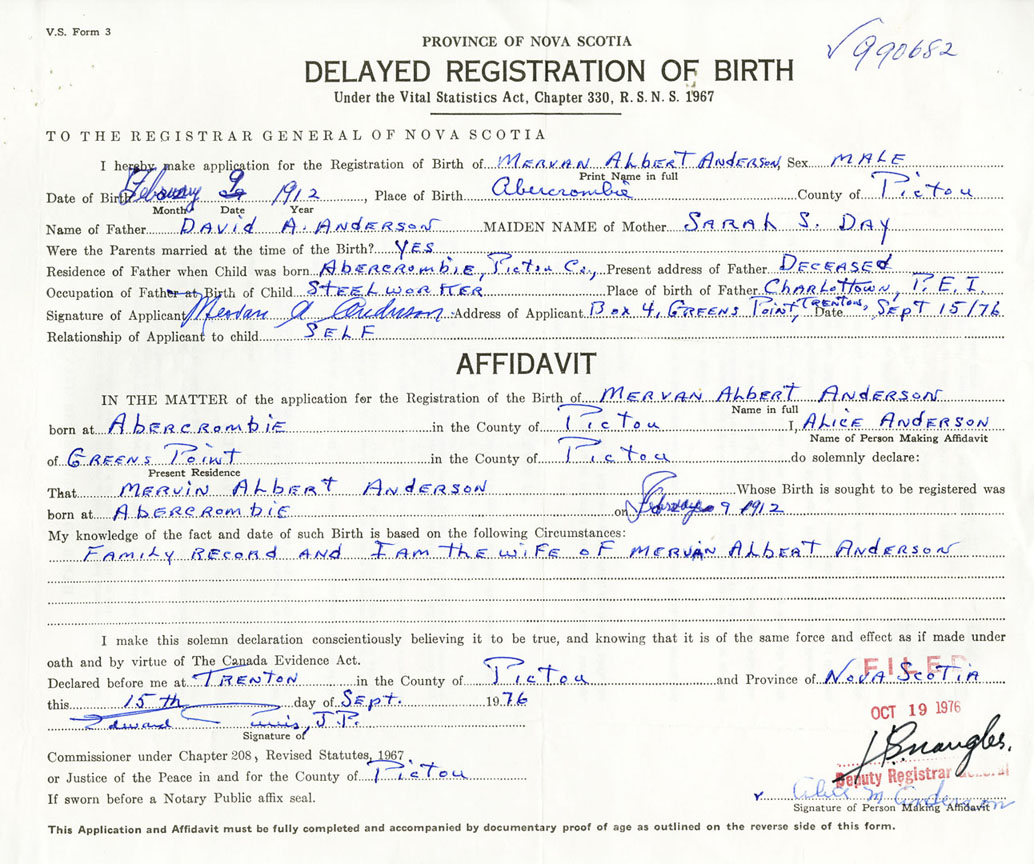 V.S. Form 3
√ 990682
PROVINCE OF NOVA SCOTIA
DELAYED REGISTRATION OF BIRTH
Under the Vital Statistics Act, Chapter 330, R. S. N. S. 1967
TO THE REGISTRAR GENERAL OF NOVA SCOTIA
I hereby make application for the Registration of Birth of MERVAN ALBERT ANDERSON, Sex MALE
Print Name in full
Date of Birth February 9 1912, Place of Birth Abercrombie County of Pictou
Month Date Year
Name of Father DAVID A. ANDERSON MAIDEN NAME of Mother SARAH S. DAY
Were the Parents married at the time of the Birth? YES
Residence of Father when Child was born ABERCROMBIE, PICTOU CO., Present address of Father DECEASED
Occupation of Father at Birth of Child STEELWORKER Place of birth of Father CHARLOTTOWN, P.E.I.
Signature of Applicant Mervan A Anderson Address of Applicant BOX 4, GREENS POINT, TRENTON, Date SEPT 15/76
Relationship of Applicant to child SELF
AFFIDAVIT
IN THE MATTER of the application for the Registration of the Birth of MERVAN ALBERT ANDERSON
Name in full
born at ABERCROMBIE in the County of PICTOU I, ALICE ANDERSON
Name of Person Making Affidavit
of GREENS POINT in the County of PICTOU do solemnly declare:
Present Residence
That MERVIN ALBERT ANDERSON Whose Birth is sought to be registered was
born at ABERCROMBIE on February 9 1912
My knowledge of the fact and date of such Birth is based on the following Circumstances:
FAMILY RECORD AND I AM THE WIFE OF MERVAN ALBERT ANDERSON
I make this solemn declaration conscientiously believing it to be true, and knowing that it is of the same force and effect as if made under
oath and by virtue of The Canada Evidence Act.
FILED
Declared before me at TRENTON in the County of PICTOU and Province of NOVA SCOTIA
this 15th day of SEPT. 1976
OCT 19 1976
Edward, J.P.
Signature of
Commissioner under Chapter 208, Revised Statutes, 1967
or Justice of the Peace in and for the County of PICTOU
Deputy Registrar General
If sworn before a Notary Public affix seal.
Alice M Anderson
Signature of Person Making Affidavit
This Application and Affidavit must be fully completed and accompanied by documentary proof of age as outlined on the reverse side of this form.